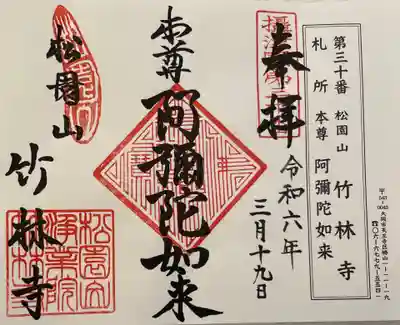 第三十番 松園山 竹林寺
札所 本尊 阿彌陀如来
大阪市天王寺区勝山
奉拝
令和六年
三月十九日
本尊
阿彌陀如来
松園山
竹林寺